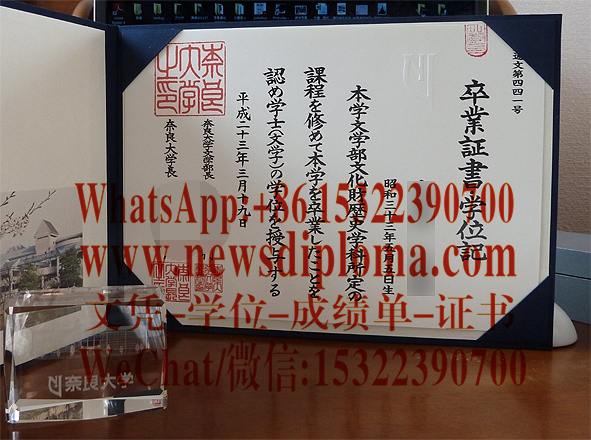 通文第四四一号
卒業証書学位記
昭和三十三年
月五日生
本学文学部文化財歴史学科所定の
課程を修めて本学を卒業したことを
認め学士(文学)の学位を授与する
平成二十三年三月十九日
奈良大学文学部長
奈良大学長
奈良大学
WhatsApp:+86 15322390700
www.newsdiploma.com
文凭-学位-成绩单-证书
WeChat/微信:15322390700